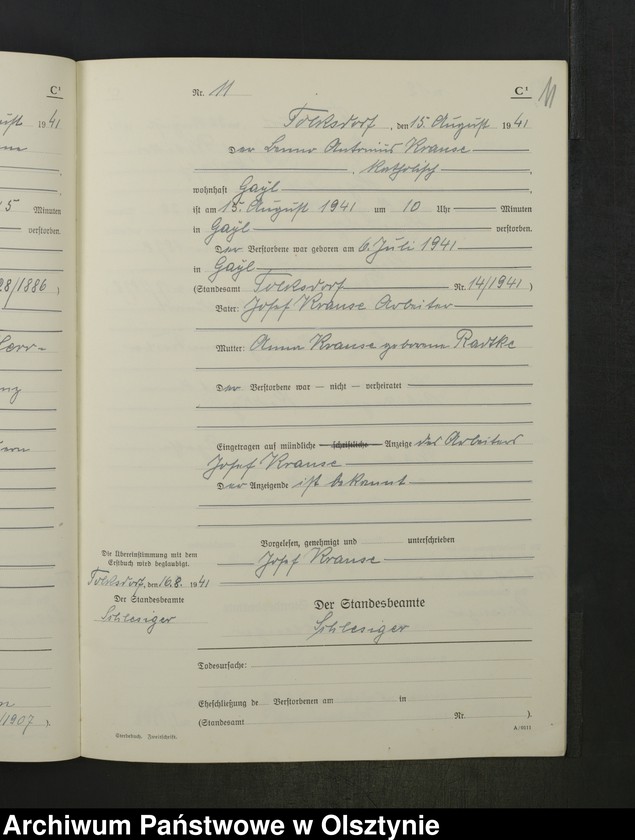 C¹
ust 1941
5 Minuten
verstorben.
28/1886 )
Herr-
/1907 ).
Nr. 11 C¹ 11
Tolksdorf, den 15. August 1941
Der Benno Antonius Krause
, katholisch,
wohnhaft Gayl,
ist am 15. August 1941 um 10 Uhr Minuten
in Gayl verstorben.
Der Verstorbene war geboren am 6. Juli 1941
in Gayl
(Standesamt Tolksdorf Nr. 14/1941 )
Vater: Josef Krause Arbeiter
Mutter: Anna Krause geborene Radtke
Der Verstorbene war — nicht — verheiratet
Eingetragen auf mündliche — schriftliche — Anzeige des Arbeiters
Josef Krause
Der Anzeigende ist bekannt
Vorgelesen, genehmigt und unterschrieben
Josef Krause
Die Übereinstimmung mit dem
Erstbuch wird beglaubigt.
Tolksdorf, den 16.8. 1941
Der Standesbeamte
Schlesiger
Der Standesbeamte
Schlesiger
Todesursache:
Eheschließung de Verstorbenen am in
(Standesamt Nr. ).
Sterbebuch. Zweitschrift.
A/0111
Archiwum Państwowe w Olsztynie